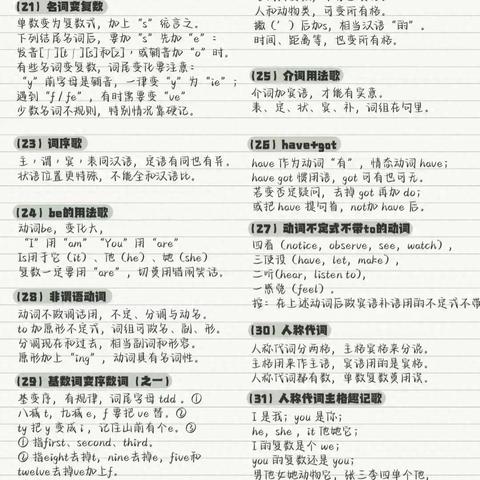 (21) 名词变复数
单数变为复数式，加上“s”统言之。
下列结尾名词后，要加“s”先加“e”：
发音[ʃ][tʃ][s]和[z]，或辅音加“o”时。
有些名词变复数，词尾变化要注意：
“y”前字母是辅音，一律变“y”为“ie”；
遇到“f/fe”，有时需要变“ve”
少数名词不规则，特别情况靠硬记。
(23) 词序歌
主，谓，宾，表同汉语，定语有同也有异。
状语位置更特殊，不能全和汉语比。
(24) be的用法歌
动词be，变化大，
“I”用“am”“You”用“are”
Is用于它（it）、他（he）、她（she）
复数一定要用“are”，切莫用错闹笑话。
(28) 非谓语动词
动词不做谓语用，不定、分词与动名。
to 加原形不定式，词组可做名、副、形。
分词现在和过去，相当副词和形容。
原形加上“ing”，动词具有名词性。
(29) 基数词变序数词（之一）
基变序，有规律，词尾字母 tdd 。①
八减 t，九减 e，f 要把 ve 替。②
ty 把 y 变成 i ，记住山前有个e。③
① 指first、second、third。
② 指eight去掉t，nine去掉e，five和
twelve去掉ve加上f。
人和动物类，可变所有格。
撇（’）后加s，相当汉语“的”。
时间、距离等，也变所有格。
(25) 介词用法歌
介词加宾语，才能有实意。
表、定、状、宾、补，词组在句里。
(26) have+got
have 作为动词“有”，情态动词 have；
have got 惯用语，got 可有也可无。
若变否定疑问，去掉 got 再加 do；
或把 have 提句首，not加 have 后。
(27) 动词不定式不带to的动词
四看（notice, observe, see, watch），
三使役（have, let, make），
二听(hear, listen to),
一感觉（feel）。
按：在上述动词后做宾语补语用的不定式不带
(30) 人称代词
人称代词分两格，主格宾格来分说。
主格用来作主语，宾语用的是宾格。
人称代词都有数，单数复数莫用误。
(31) 人称代词主格趣记歌
I 是我；you 是你；
he，she ，it 他她它；
I 的复数是个 we；
you 的复数还是 you；
男他女她动物它，张三李四单个他，